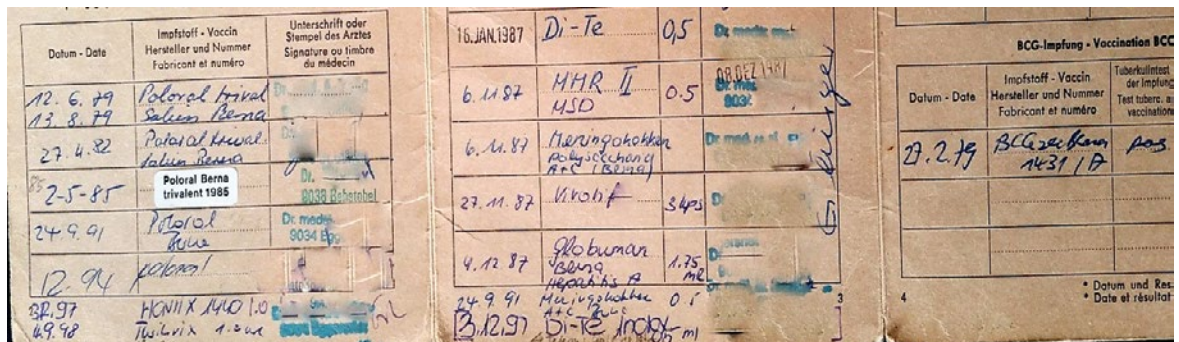 Datum - Date
Impfstoff - Vaccin
Hersteller und Nummer
Fabricant et numéro
Unterschrift oder
Stempel des Arztes
Signature ou timbre
du médecin
12. 6. 79 Poloral trival
13. 8. 79 Sabin Berna
27. 4. 82 Poloral trival.
Sabin Berna
2-5-85 Poloral Berna
trivalent 1985
Dr.
9038 Rehetobel
24.9.91 Poloral
Berna
Dr. med.
9034 Egg
12.94 poloral
3.12.97 HAVRIX 1440 1.0
4.9.98 Twinrix
16. JAN. 1987 Di-Te 0,5 Dr. med.
08. DEZ 1987
6. 11. 87 MMR II 0.5 Dr. med.
MSD 9034
6. 11. 87 Meningokokken Dr. med.
polysaccharid
A+C (Berna)
27. 11. 87 Vivotif 3 kps Dr
4. 12. 87 Globuman 1.75
Berna ml
Hepatitis A
24. 9. 91 Meningokokken 0.5
A+C Berna
3.12.97 Di-Te
ml
3
BCG-Impfung - Vaccination BCG
Datum - Date
Impfstoff - Vaccin
Hersteller und Nummer
Fabricant et numéro
Tuberkulintest
der Impfung
Test tuberc. a
vaccination
27. 2. 79 BCG pos.
1431 / A
4
* Datum und Res
* Date et résultat